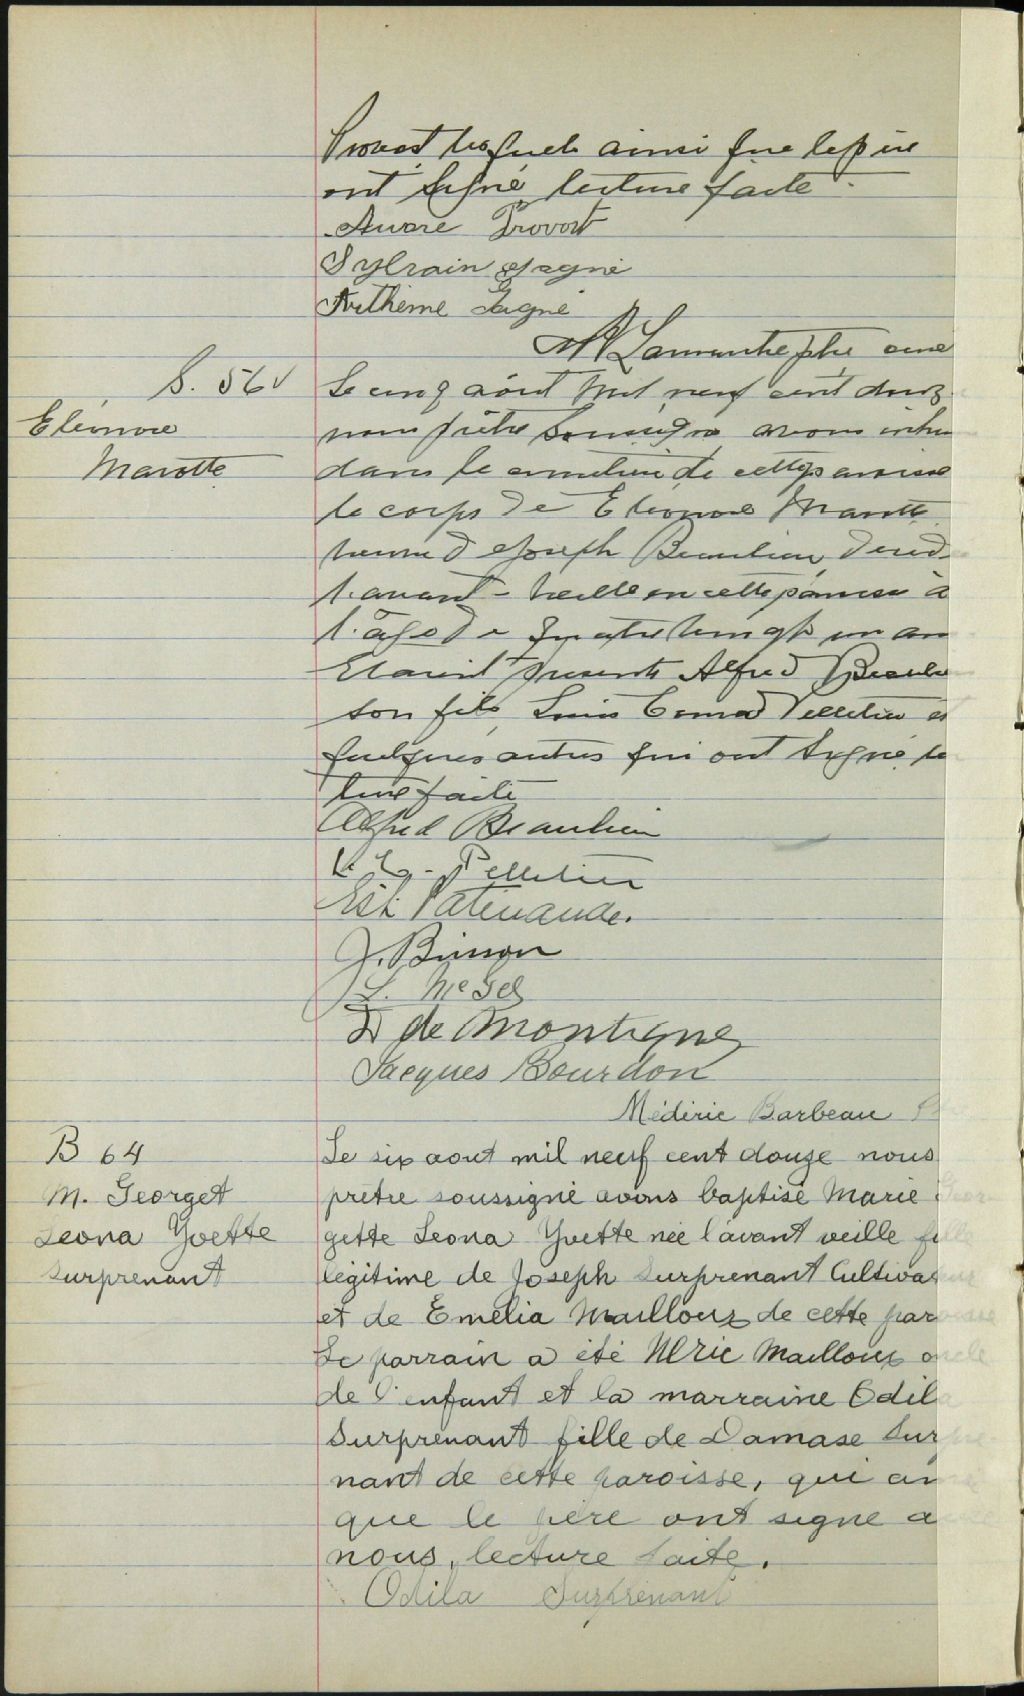 Provost lesquels ainsi que le père
ont signé lecture faite.
Aurore Provost
Sylvain Gagné
Arthème Gagné
ptre curé
S. 56
Le cinq août mil neuf cent douze
Eléonore
nous prêtre soussigné avons inhu
Marotte
dans le cimetière de cette paroisse
le corps de Eléonore Marotte
veuve de Joseph Beaulieu, décéd
l'avant-veille en cette paroisse à
l'âge de quatre vingt un an
Etaient présents Alfred Beaulieu
son fils, Louis Conrad Pelletier et
quelques autres qui ont signé lec
ture faite
Alfred Beaulieu
L. C. Pelletier
Est. Patenaude.
J. Brisson
L. McGee
D de Montigny
Jacques Bourdon
Médéric Barbeau
B 64
Le six aout mil neuf cent douze nous
M. Georget
prêtre soussigné avons baptisé Marie Geor
Leona Yvette
gette Leona Yvette née l'avant veille fille
Surprenant
légitime de Joseph Surprenant Cultivateur
et de Emélia Mailloux de cette paroisse
Le parrain a été Ulric Mailloux oncle
de l'enfant et la marraine Odila
Surprenant fille de Damase Surpre
nant de cette paroisse, qui ain
que le père ont signé a
nous, lecture faite.
Odila Surprenant